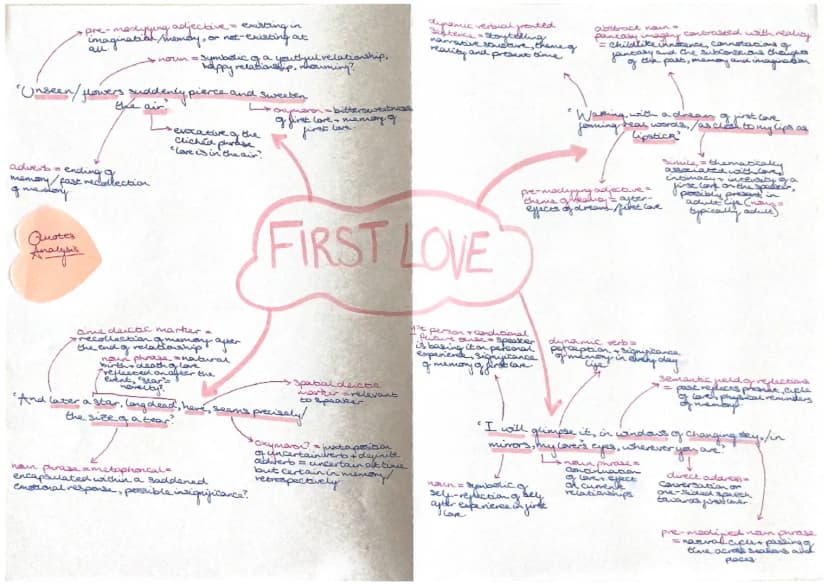 pre-modifying adjective = existing in
imagination/memory, or not-existing at
all
noun = symbolic of a youthful relationship,
happy relationship, mourning?
"Unseen/flowers suddenly pierce and sweeten
the air."
oxymoron = bittersweetness
of first love + memory of
first love
evocative of the
clichéd phrase
"love is in the air".
adverb = ending of
memory/fast recollection
of memory
Quotes
Analysis
dynamic verbial fronted
sentence = storytelling
narrative structure, theme of
reality and present time
abstract noun =
fantasy imagery contrasted with reality
= childlike innocence, connotations of
fantasy and the subconscious thoughts
of the past, memory and imagination
"Waking, with a dream of first love
forming real words,/as close to my lips as
lipstick"
pre-modifying adjective =
theme of reality = after-
effects of dream/first love
simile = thematically
associated with love,
intimacy + intensity of a
first love on the speaker,
possibly present in
adult life (noun =
typically adult)
FIRST LOVE
time deictic marker =
recollection of memory after
the end of relationship
noun phrase = natural
birth + death of love
reflected on after the
event, "star" =
novelty?
spatial deictic
marker = relevant
to speaker
"And later a star, long dead, here, seems precisely/
the size of a tear."
noun phrase = metaphorical =
encapsulated within a saddened
emotional response, possible insignificance?
oxymoron? = juxtaposition
of uncertain verb + definite
adverb = uncertain at time
but certain in memory/
retrospectively
1st person + conditional
future tense = speaker
is basing it on personal
experience, significance
of memory of first love
dynamic verb =
perception + significance
of memory in every day
life
semantic field of reflections
= past replaces present, cycle
of love, physical reminders
of memory
"I will glimpse it, in windows of changing sky,/in
mirrors, my lover's eyes, wherever you are."
noun = symbolic of
self-reflection of self
after experience in first
love
noun phrase =
continuation
of love + effect
on current
relationships
direct address =
conversation or
one-sided speech
towards first lover
pre-modified noun phrase
= natural cycle + passing of
time across seasons and
places